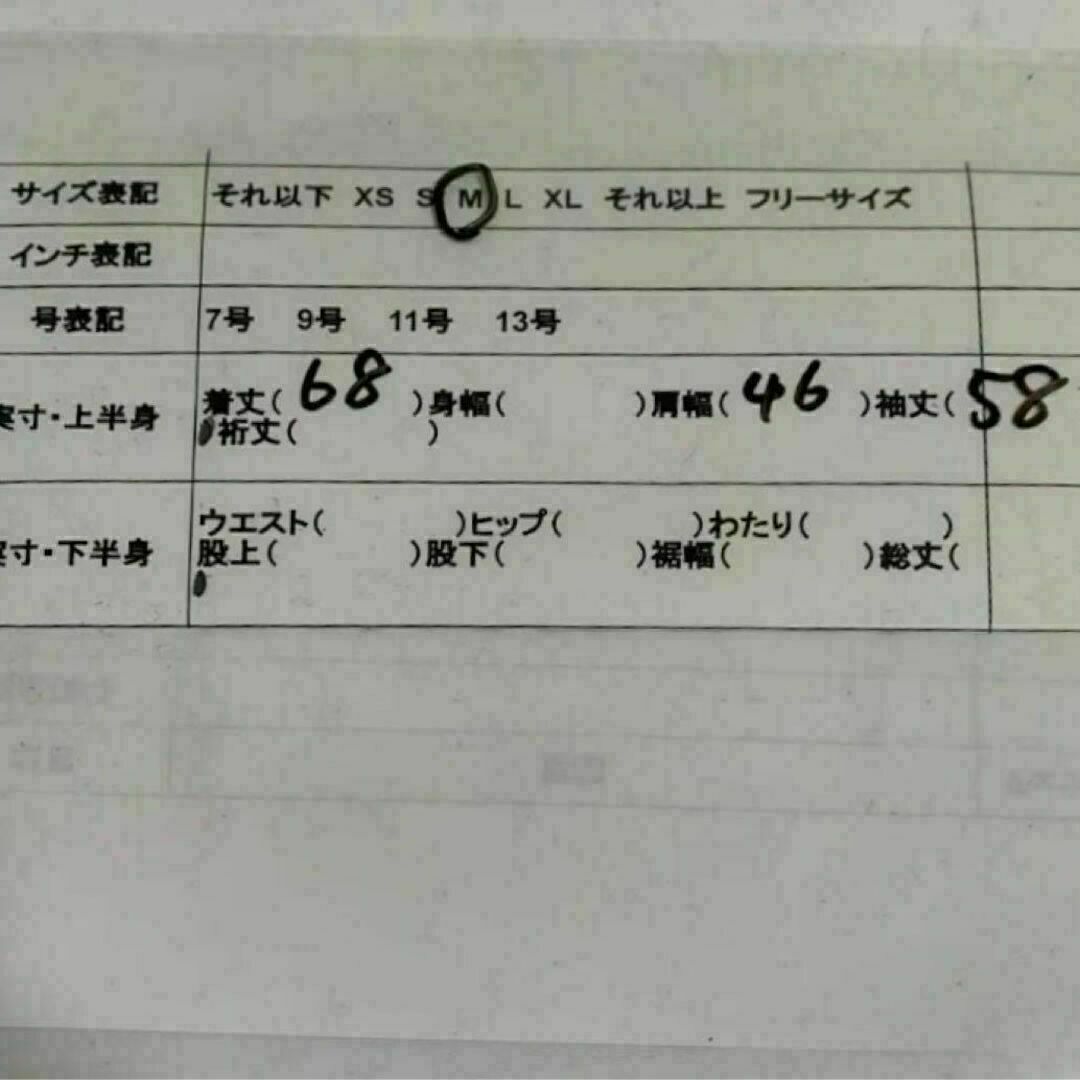 サイズ表記 それ以下 XS S M L XL それ以上 フリーサイズ
インチ表記
号表記 7号 9号 11号 13号
実寸・上半身 着丈( 68 )身幅( )肩幅( 46 )袖丈( 58
裄丈( )
実寸・下半身 ウエスト( )ヒップ( )わたり( )
股上( )股下( )裾幅( )総丈(